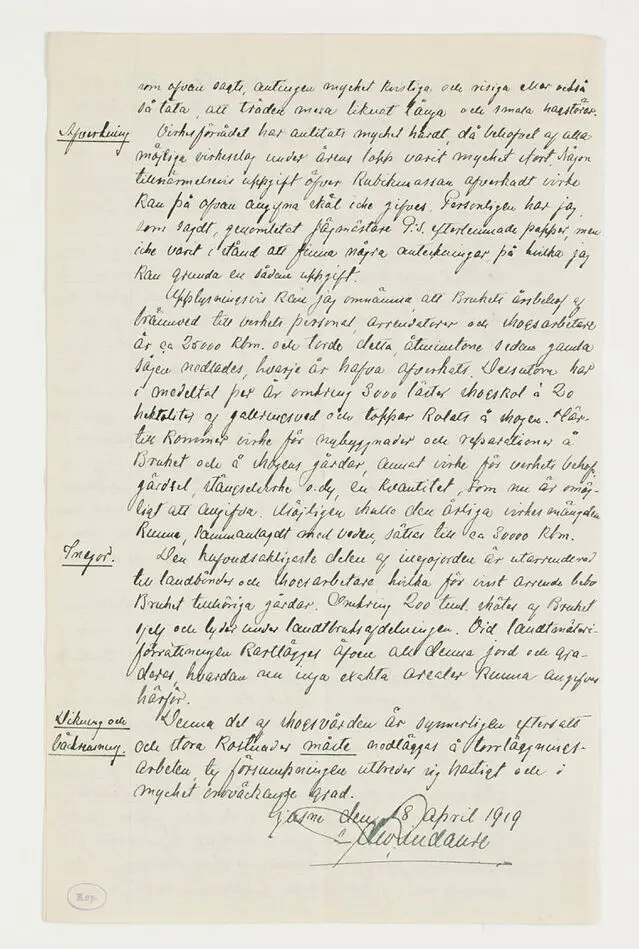 som ofvan sagts, antingen mycket kvistiga och risiga eller också
så täta, att träden mera liknat långa och smala hagstörar.
Afverkning
Virkesförrådet har anlitats mycket hårdt, då behofvet af alla
möjliga virkesslag under årens lopp varit mycket stort. Någon
tillnärmelsevis uppgift öfver Kubikmassan afverkadt virke
kan på ofvan angifna skäl icke gifvas. Personligen har jag,
som sagdt, genomletat Jägmästare efterlemnade papper, men
icke varit i stånd att finna några anteckningar på hvilka jag
kan grunda en sådan uppgift.
Upplysningsvis kan jag omnämna, att Brukets årsbehof af
brännved till verkets personal, arrendatorer och skogsarbetare
är ca 25000 Kbm. och torde detta, åtminstone sedan gamla
sågen nedlades, hvarje år hafva afverkats. Dessutom har
i medeltal per år omkring 3000 läster skogskol à 20
hektoliter af gallringsved och toppar Kolats å skogen. Här-
till Kommer virke för nybyggnader och reparationer å
Bruket och å skogens gårdar, annat virke för verkets behof,
gärdsel, stängselvirke o.dy, en kvantitet, som nu är omöj-
ligt att angifva. Möjligen skulle den årliga virkesmängden
Kunna, sammanlagdt med veden, sättas till ca 30000 Kbm.
Inegor.
Den hufvudsakligaste delen af inegojorden är utarrenderad
till landtbönder och skogsarbetare hvilka för visst arrende bebo
Bruket tillhöriga gårdar. Omkring 200 tunl. skötes af Bruket
sjelf och lyder under landtbruksafdelningen. Vid landtmäteri-
förrättningen Kartlägges äfven all denna jord och gra-
deras, hvardan nu inga exakta arealer Kunna angifves
härför.
Dikning och
bäckrensning.
Denna del af skogsvården är synnerligen eftersatt
och stora Kostnader måste nedläggas å torrläggnings-
arbeten, ty försumpningen utbreder sig hastigt och i
mycket oroväckande grad.
den 8 April 1919
Kop.